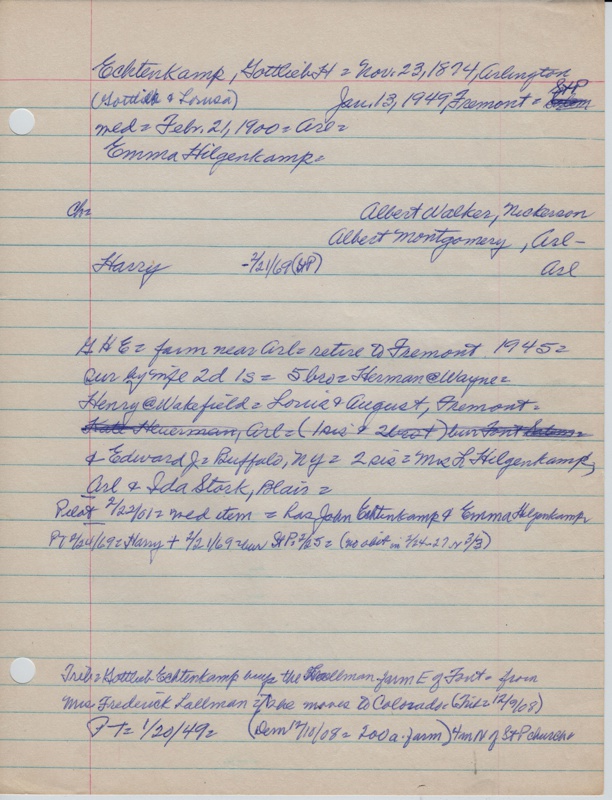 Echtenkamp, Gottlieb H = Nov. 23, 1874, Arlington
(Gottlieb & Louisa) Jan. 13, 1949, Fremont = StP
med = Febr. 21, 1900 = Arl =
Emma Hilgenkamp =
Ch = Albert Walker, Nickerson
Albert Montgomery, Arl -
Harry - 2/21/69 (StP) Arl
G H E = farm near Arl = retire to Fremont 1945 =
sur by wife 2d 1s = 5 bro = Herman @ Wayne =
Henry @ Wakefield = Louis & August, Fremont =
Kate Heuerman, Arl = (1 sis & 2 bro ) bur Font
& Edward J = Buffalo, NY = 2 sis = Mrs L Hilgenkamp,
Arl & Ida Stork, Blair =
Pilot 2/22/01 = wed item = has John Echtenkamp & Emma Hilgenkamp
PT 2/24/69 = Harry + 2/21/69 = bur StP = 2/25 = (no obit in 2/24-27 or 3/3)
Trib = Gottlieb Echtenkamp buys the Lallman farm E of Font - from
Mrs Frederick Lallman = she moves to Colorado (Trib = 12/9/08)
PT = 1/20/49 = (Dem 12/10/08 = 200 a. farm) 4 m N of St P church